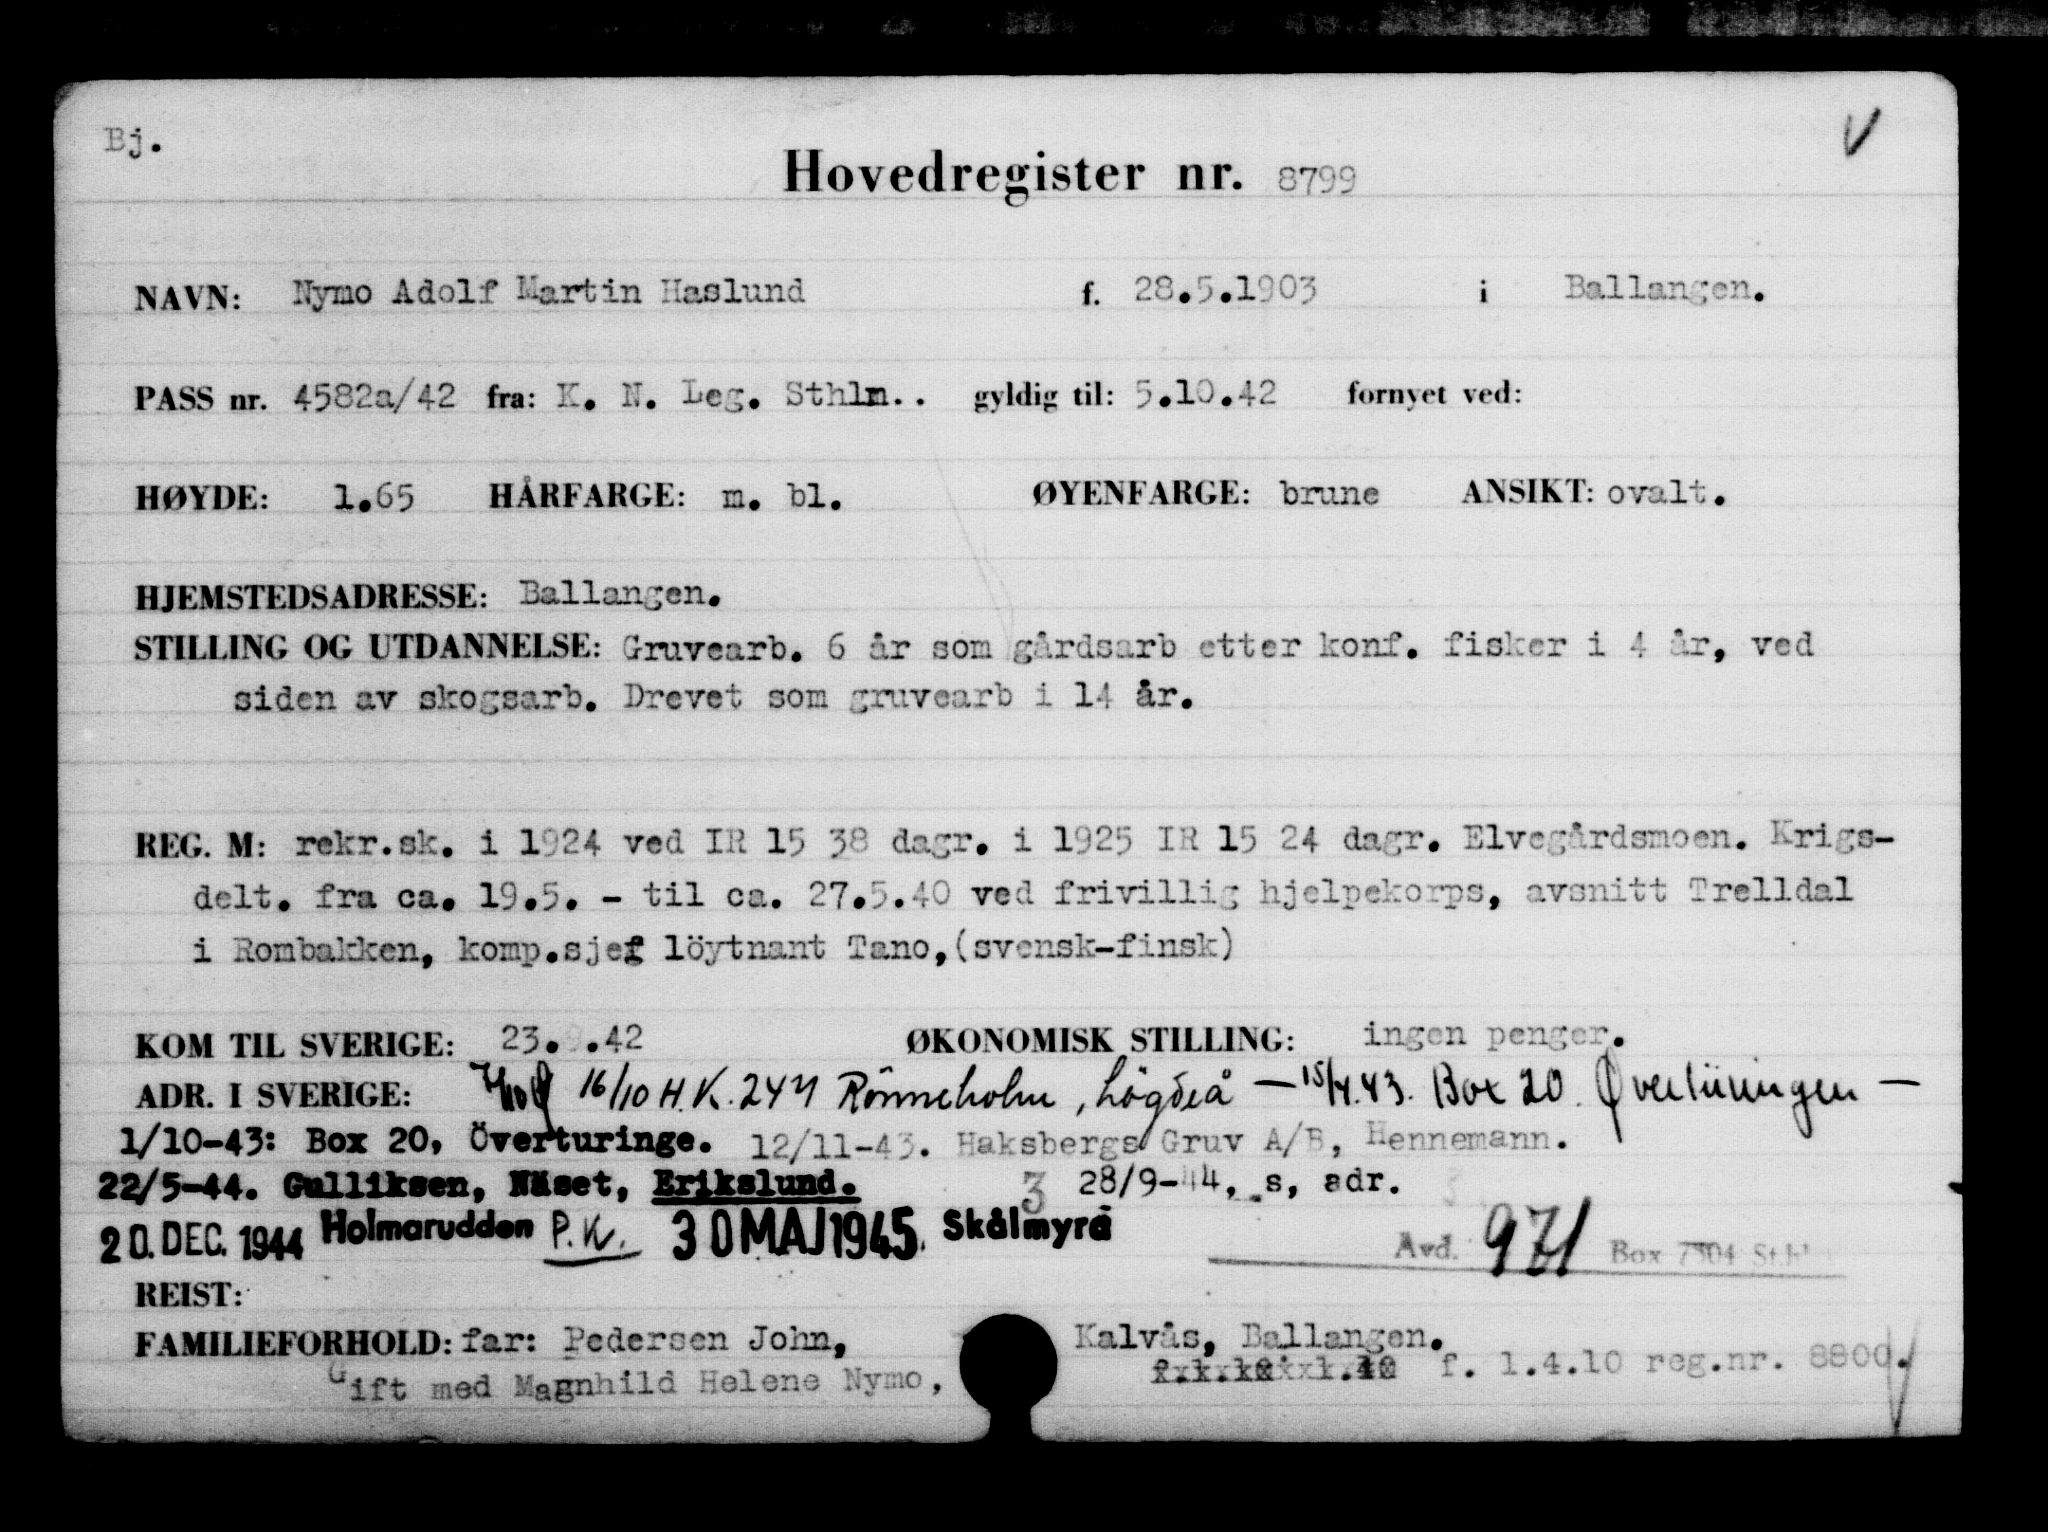 Bj.
V
Hovedregister nr. 8799
NAVN: Nymo Adolf Martin Haslund f. 28.5.1903 i Ballangen.
PASS nr. 4582a/42 fra: K. N. Leg. Sthlm.. gyldig til: 5.10.42 fornyet ved:
HØYDE: 1.65 HÅRFARGE: m. bl. ØYENFARGE: brune ANSIKT: ovalt.
HJEMSTEDSADRESSE: Ballangen.
STILLING OG UTDANNELSE: Gruvearb. 6 år som gårdsarb etter konf. fisker i 4 år, ved
siden av skogsarb. Drevet som gruvearb i 14 år.
REG. M: rekr.sk. i 1924 ved IR 15 38 dagr. i 1925 IR 15 24 dagr. Elvegårdsmoen. Krigs-
delt. fra ca. 19.5. - til ca. 27.5.40 ved frivillig hjelpekorps, avsnitt Trelldal
i Rombakken, komp.sjef löytnant Tano,(svensk-finsk)
KOM TIL SVERIGE: 23.9.42 ØKONOMISK STILLING: ingen penger.
ADR. I SVERIGE: 16/10 H.K. 244 Rönneholm, Lögdeå — 15/4.43. Box 20. Øverturingen —
1/10-43: Box 20, Överturinge. 12/11-43. Haksbergs Gruv A/B, Hennemann.
22/5-44. Gulliksen, Näset, Erikslund. 3 28/9-44, s, adr.
20. DEC. 1944 Holmarudden P.K. 30 MAJ 1945. Skålmyra
Avd. 971 Box 7304 Sthl
REIST:
FAMILIEFORHOLD: far: Pedersen John, Kalvås, Ballangen.
Gift med Magnhild Helene Nymo, f. 1.4.10 reg.nr. 8800.